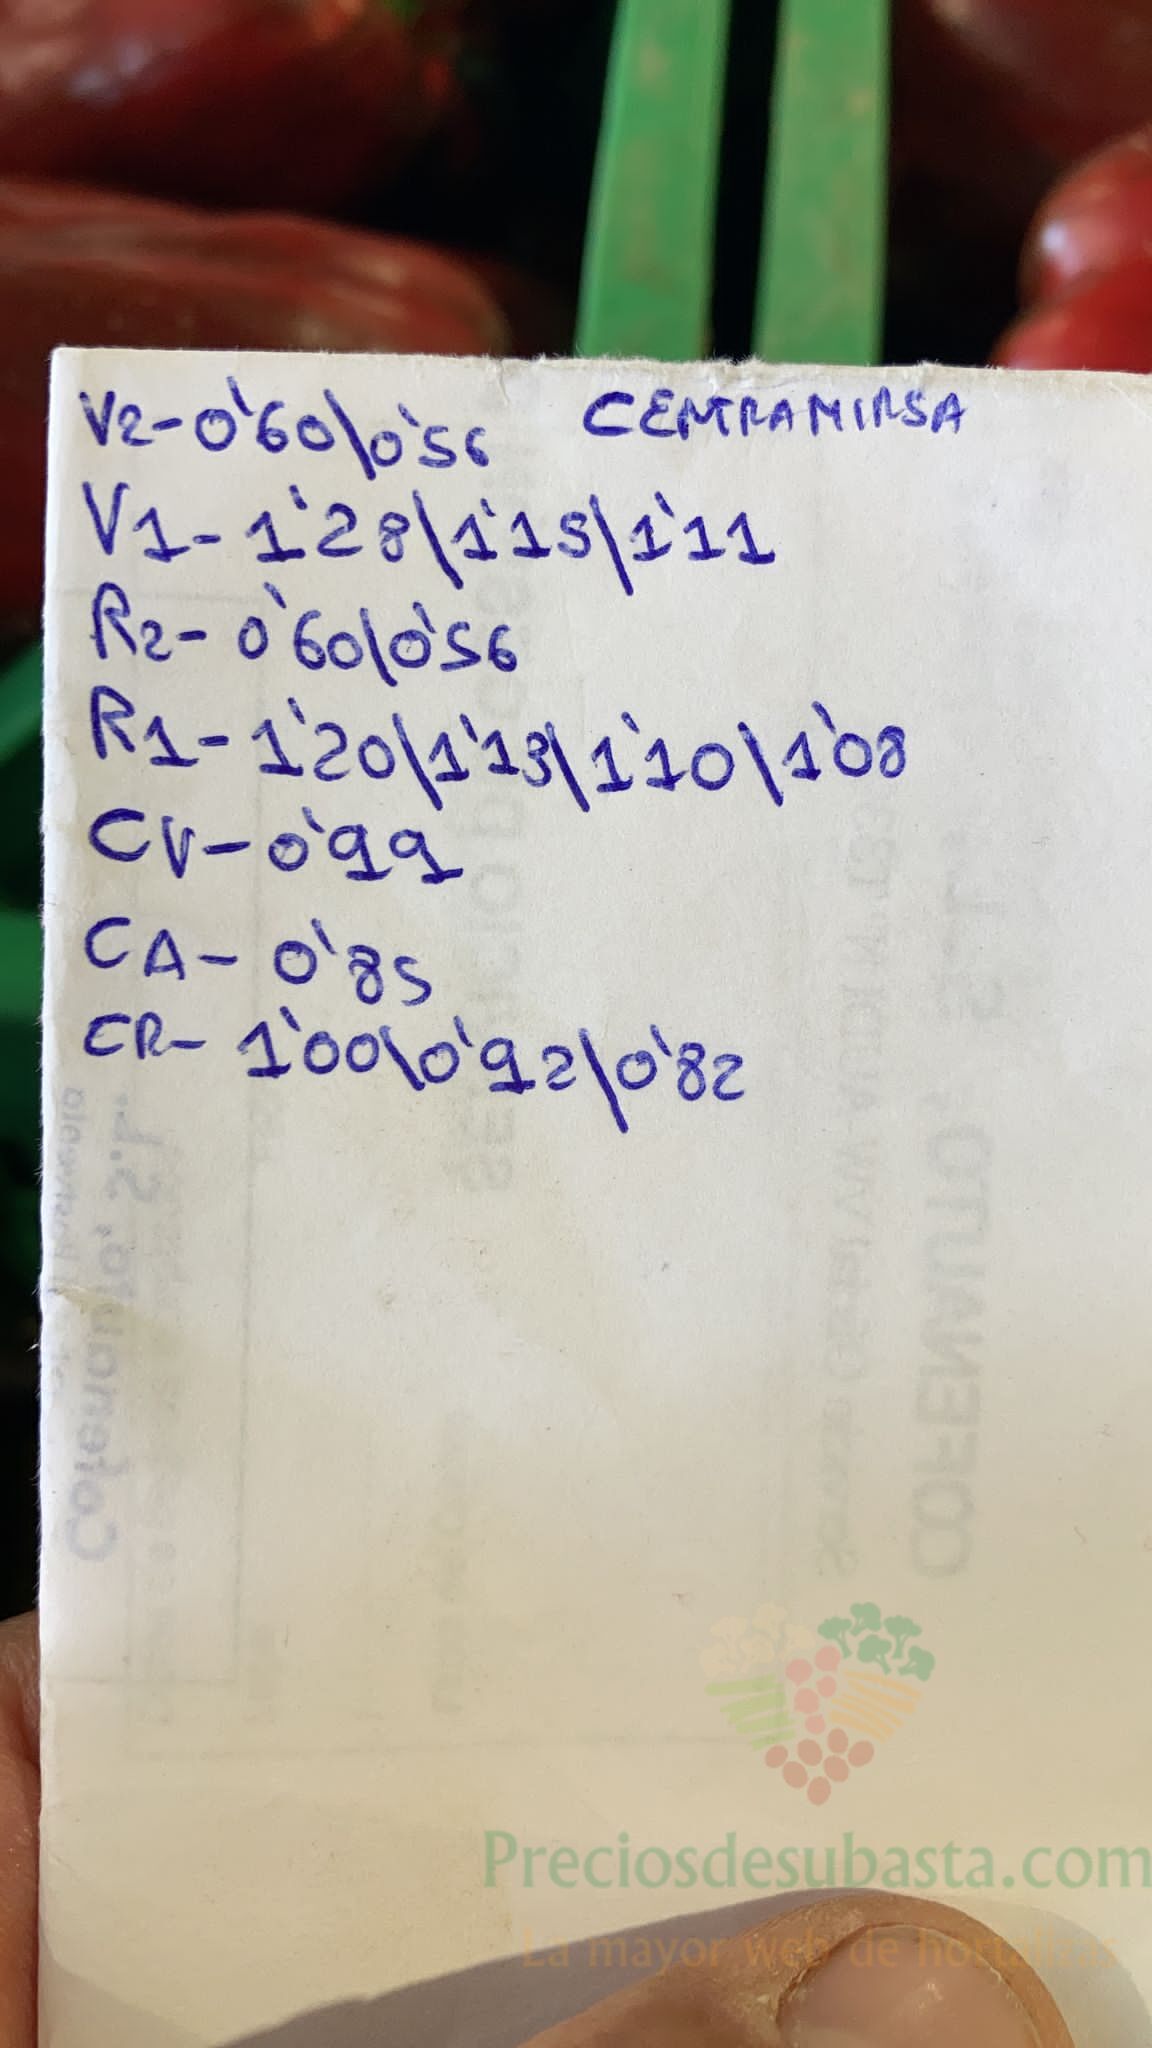 V2-0'60\0'56 CENTRAMIRSA
V1-1'28\1'15\1'11
R2-0'60\0'56
R1-1'20\1'13\1'10\1'08
CV-0'99
CA-0'85
CR-1'00\0'92\0'82
Preciosdesubasta.com
La mayor web de hortalizas